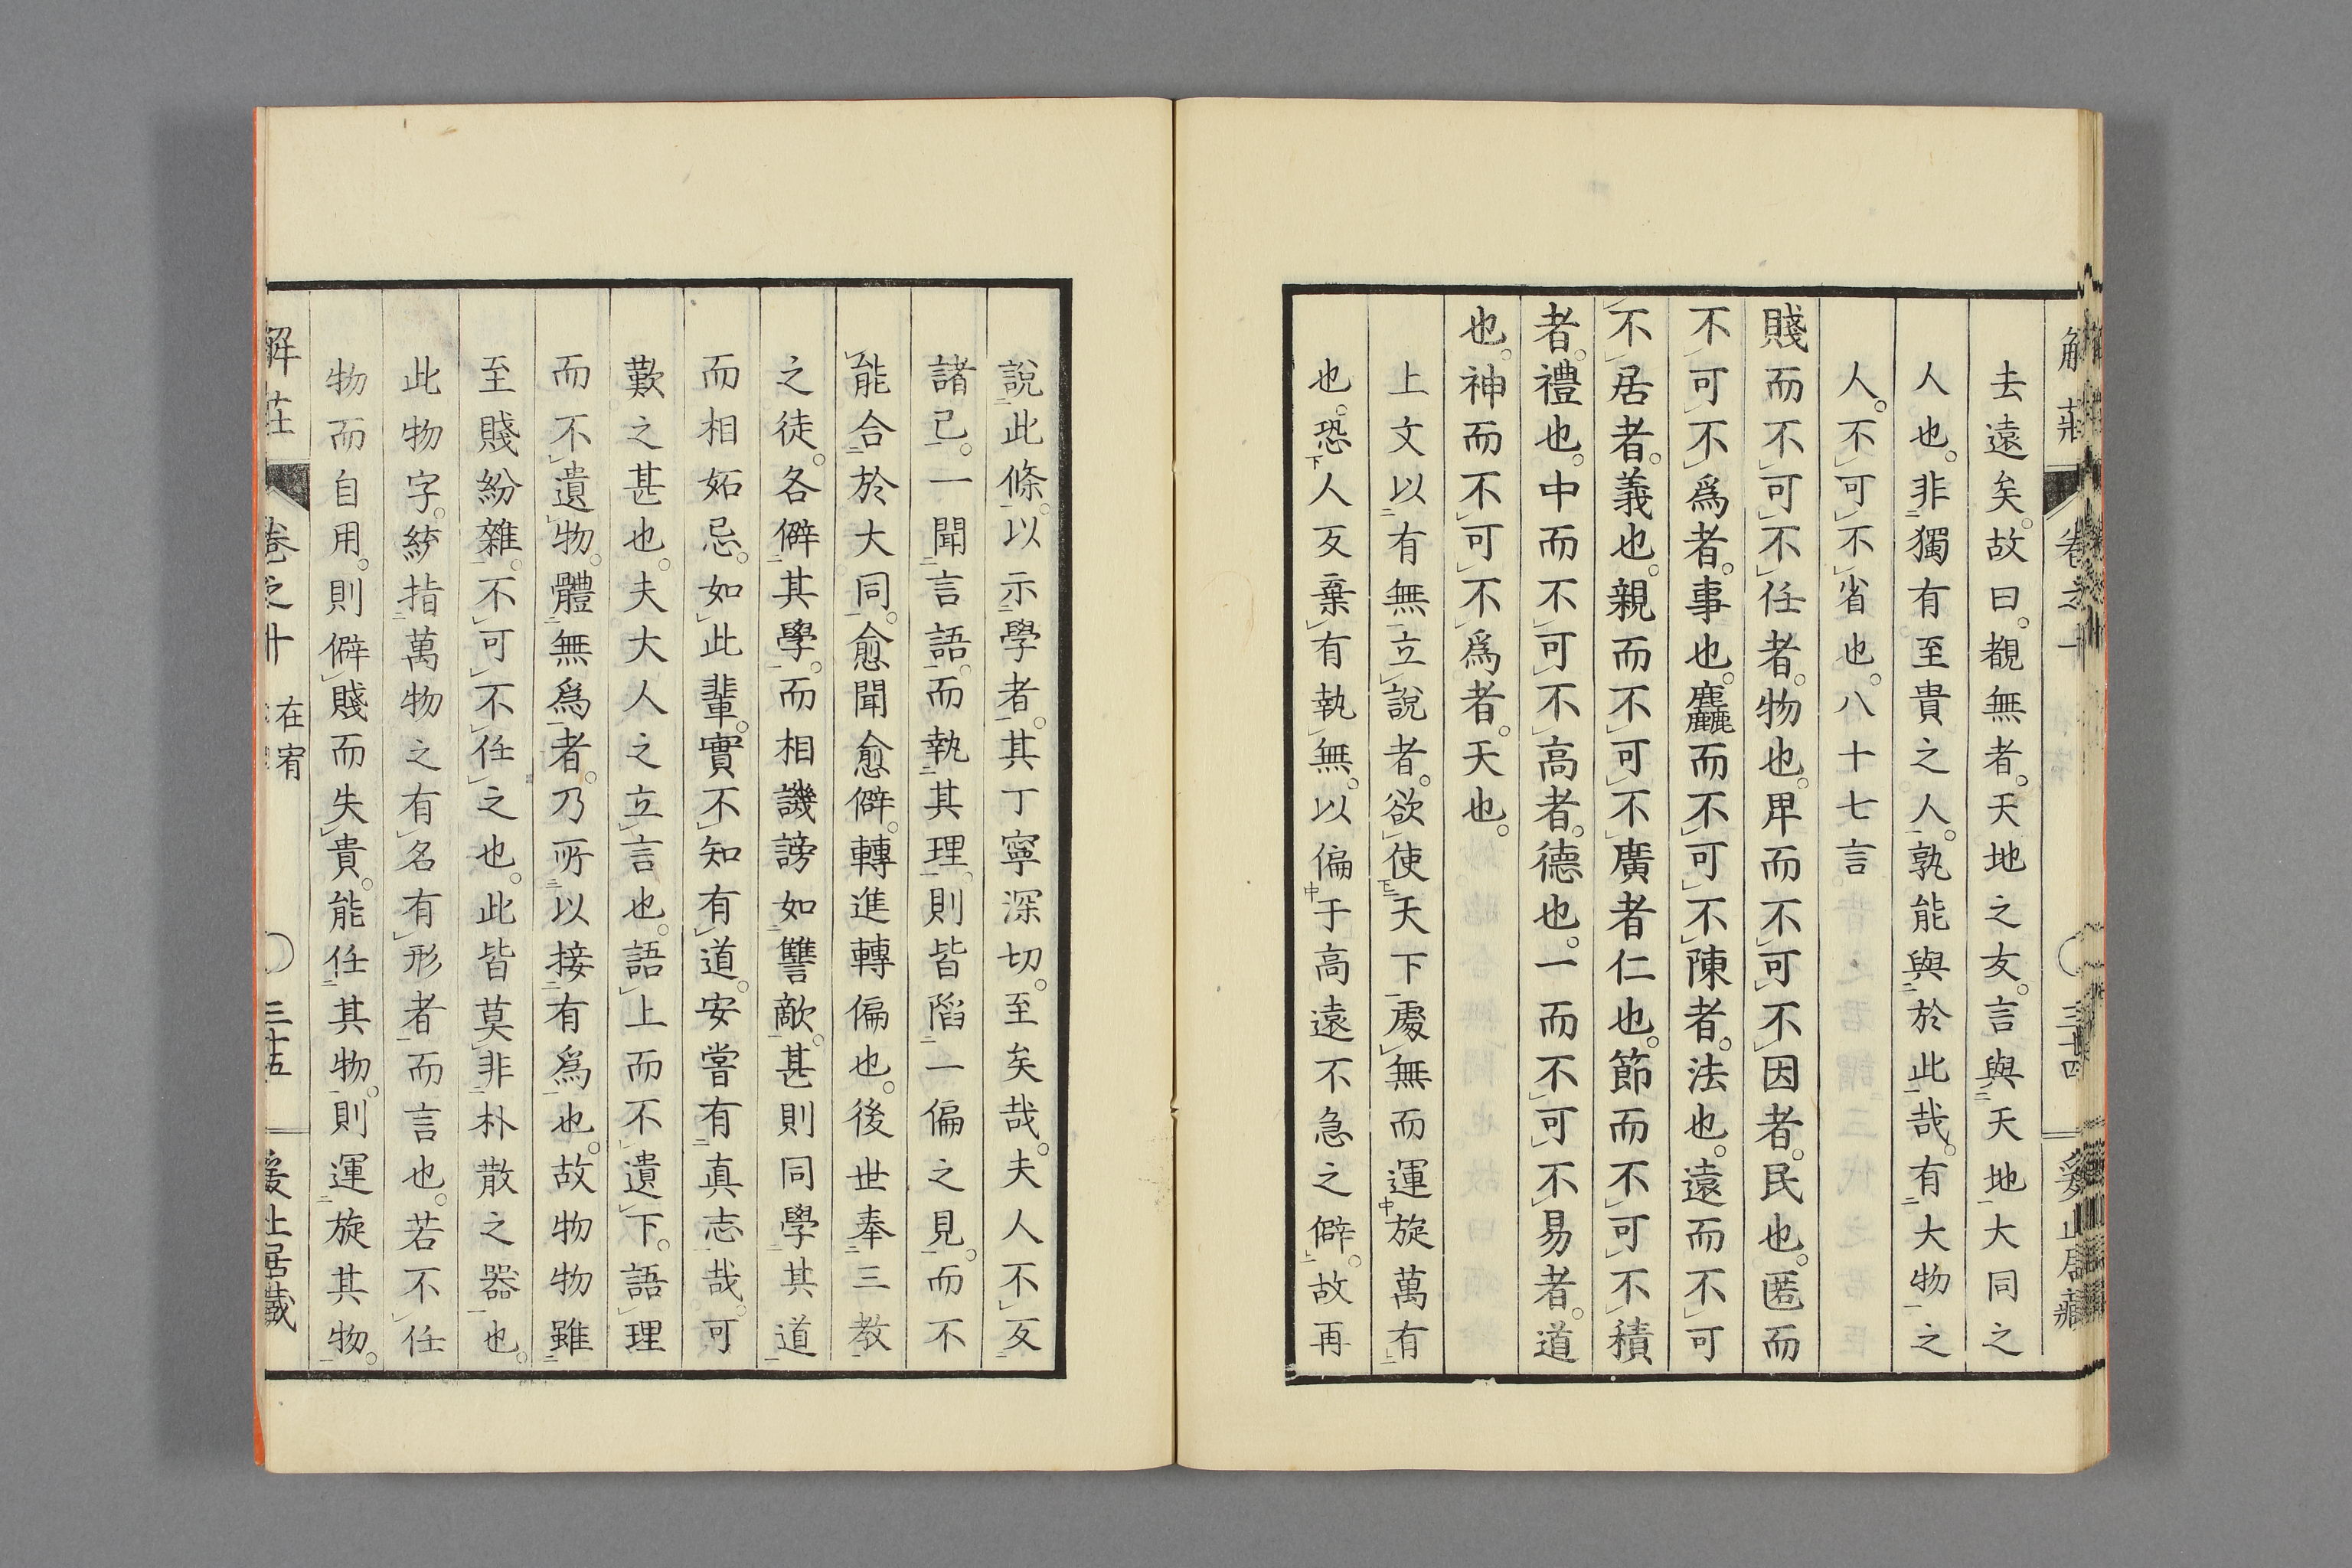 解莊 卷之一 三十四 爰止居藏
去遠矣。故曰。覩無者。天地之友。言與天地大同之
人也。非獨有至貴之人。孰能與於此哉。有大物之
人。不可不省也。八十七言
賤而不可不任者。物也。卑而不可不因者。民也。匿而
不可不爲者。事也。麤而不可不陳者。法也。遠而不可
不居者。義也。親而不可不廣者仁也。節而不可不積
者。禮也。中而不可不高者。德也。一而不可不易者。道
也。神而不可不爲者。天也。
上文以有無立說者。欲使天下處無而運旋萬有
也。恐人反棄有執無。以偏于高遠不急之僻。故再
說此條。以示學者。其丁寧深切。至矣哉。夫人不反
諸己。一聞言語。而執其理。則皆陷一偏之見。而不
能合於大同。愈聞愈僻。轉進轉偏也。後世奉三教
之徒。各僻其學。而相譏謗如讐敵。甚則同學其道
而相妬忌。如此輩。實不知有道。安嘗有真志哉。可
歎之甚也。夫大人之立言也。語上而不遺下。語理
而不遺物。體無爲者。乃所以接有爲也。故物物雖
至賤紛雜。不可不任之也。此皆莫非朴散之器也。
此物字。統指萬物之有名有形者而言也。若不任
物而自用。則僻賤而失貴。能任其物。則運旋其物。
解莊 卷之十 在宥 三十五 爰止居藏